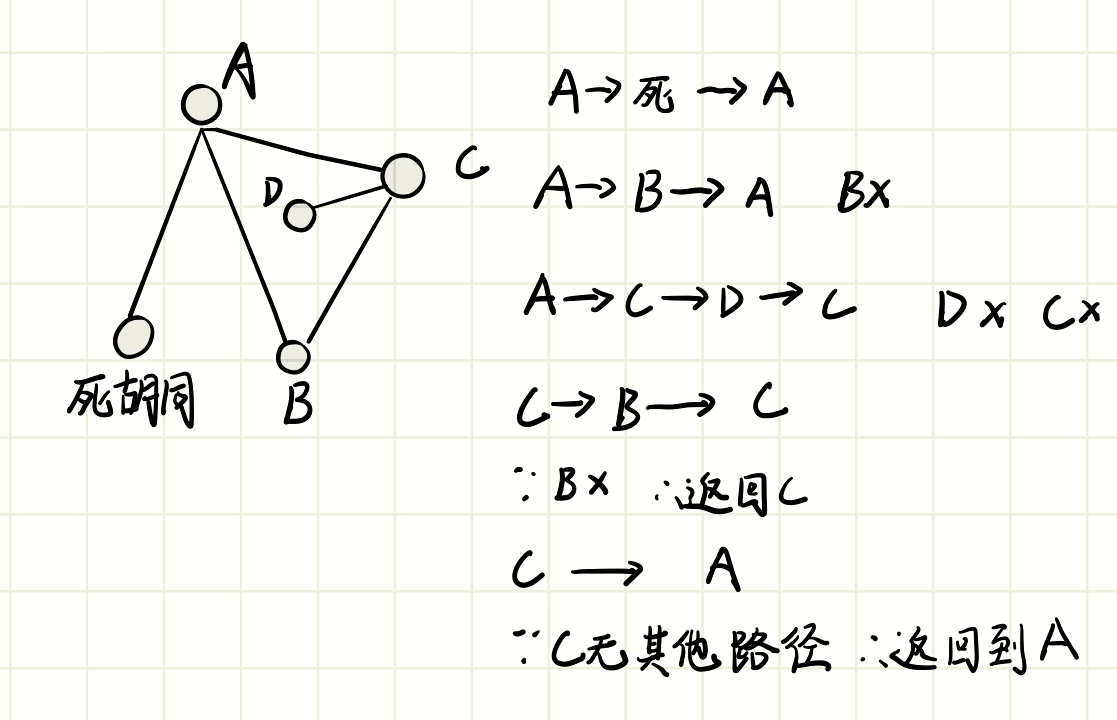 A
C
D
死胡同
B
A→死→A
A→B→A Bx
A→C→D→C Dx Cx
C→B→C
∵Bx ∴返回C
C→A
∵C无其他路径 ∴返回到A